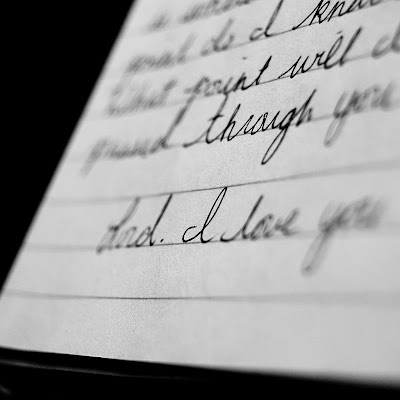 do I know
What point will I
through you
Lord. I love you